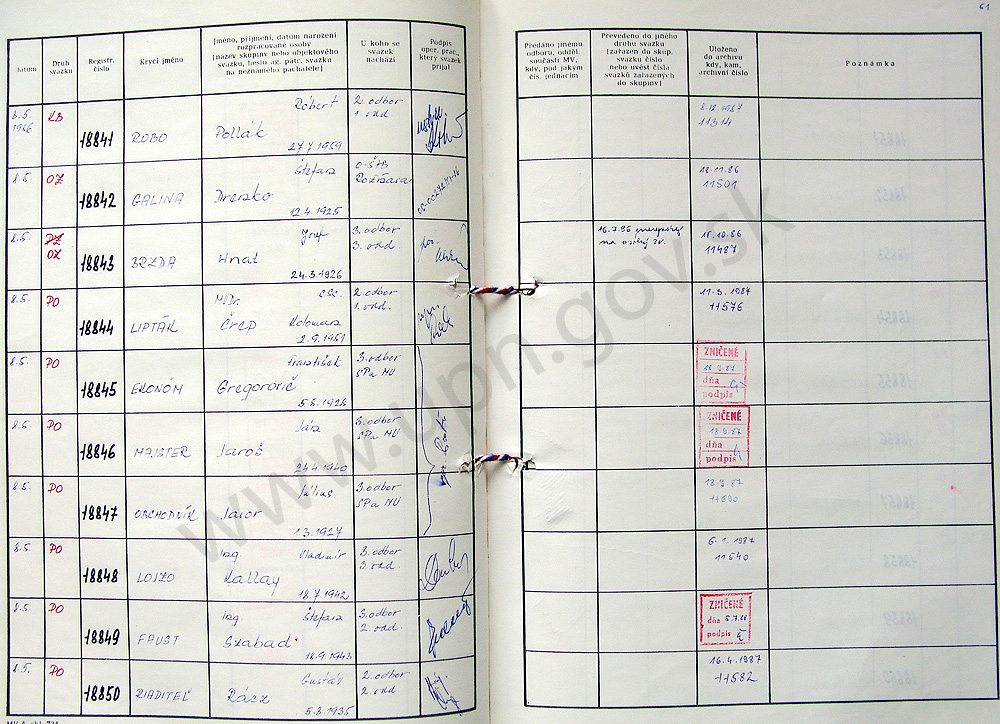 61
Datum
Druh
svazku
Registr.
číslo
Krycí jméno
Jméno, příjmení, datum narození
rozpracované osoby
[název skupiny nebo objektového
svazku, heslo ag. pátr. svazku
na neznámého pachatele]
U koho se
svazek
nachází
Podpis
oper. prac.,
který svazek
přijal
Předáno jinému
odboru, odděl.
součásti MV,
kdy, pod jakým
čís. jednacím
Převedeno do jiného
druhu svazku
[zařazen do skup.
svazku číslo
nebo uvést čísla
svazků zařazených
do skupiny]
Uloženo
do archivu
kdy, kam,
archivní číslo
Poznámka
8.5.
1986
KB
18841
ROBO
Róbert
Pollák
27.7.1959
2. odbor
1. odd
8.12.1987
11314
8.5.
OZ
18842
GALINA
Štefan
12.4.1925
O-ŠtB
Rožňava
18.11.86
11501
8.5.
PZ
OZ
18843
BRZDA
Jozef
Hnat
24.3.1926
3. odbor
3. odd.
16.7.86
na osoby zv.
15.10.86
11487
8.5.
PO
18844
LIPTÁK
MUDr. CSc.
Črep Koloman
2.9.1951
2. odbor
1. odd.
17.3.1987
11576
8.5.
PO
18845
EKONÓM
František
Gregorovič
5.8.1926
3. odbor
SPa MV
ZNIČENÉ
18.9.87
dňa
podpis
8.5.
PO
18846
MAJSTER
Ján
Jaroš
24.4.1940
3. odbor
SPa MV
ZNIČENÉ
18.9.87
dňa
podpis
8.5.
PO
18847
OBCHODNÍK
Július
1.3.1927
3. odbor
SPa MV
18.9.87
11690
8.5.
PO
18848
LOJZO
Ing. Vladimír
Kallay
18.7.1942
3. odbor
3. odd.
6.1.1987
11540
8.5.
PO
18849
FAUST
Ing. Štefan
Szabad
18.9.1943
3. odbor
2. odd.
ZNIČENÉ
dňa 5.7.88
podpis
8.5.
PO
18850
RIADITEĽ
Gustáv
Rácz
5.8.1935
2. odbor
2. odd
16.4.1987
11582
www.upn.gov.sk